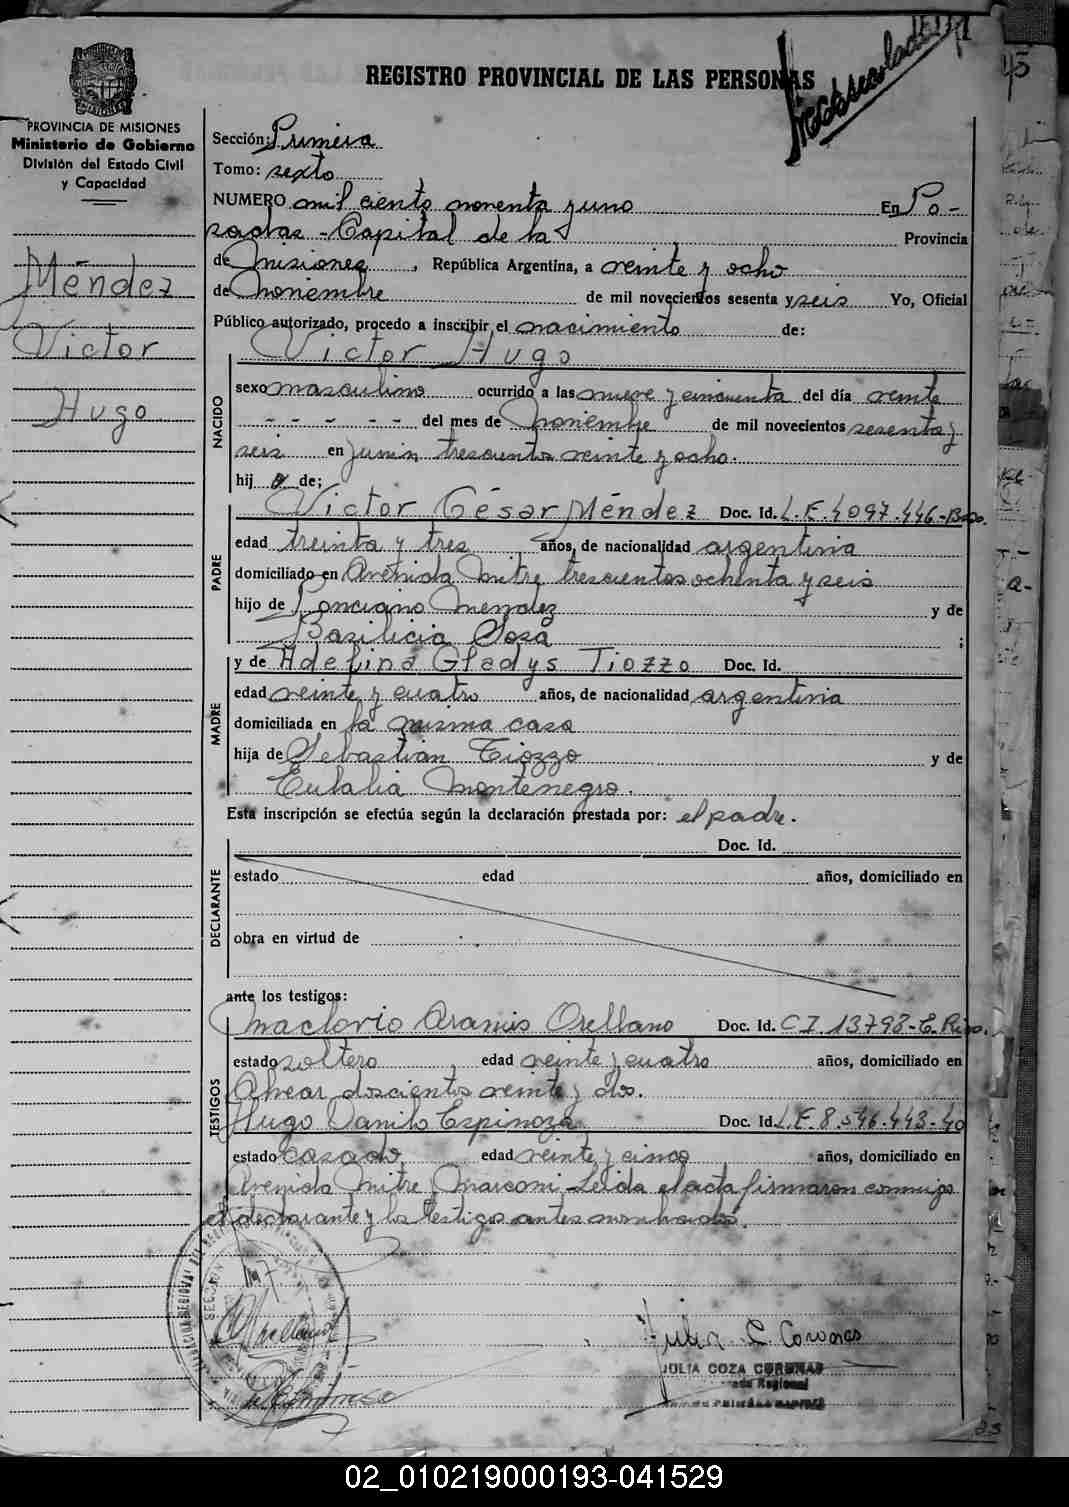 REGISTRO PROVINCIAL DE LAS PERSONAS
PROVINCIA DE MISIONES
Ministerio de Gobierno
División del Estado Civil
y Capacidad
Méndez
Victor
Hugo
Sección: Primera
Tomo: sexto
NUMERO mil ciento noventa y uno En Po-
sadas - Capital de la Provincia
de Misiones, República Argentina, a veinte y ocho
de Noviembre de mil novecientos sesenta y seis Yo, Oficial
Público autorizado, procedo a inscribir el nacimiento de:
NACIDO
Victor Hugo
sexo masculino ocurrido a las nueve y cincuenta del día veinte
- - - - - del mes de Noviembre de mil novecientos sesenta y
seis en Junin trescientos veinte y ocho.
hijo de;
PADRE
Victor César Méndez Doc. Id. L.E. 4097.446-
edad treinta y tres años, de nacionalidad argentina
domiciliado en Avenida Mitre trescientos ochenta y seis
hijo de Ponciano Mendez y de
Basilicia Sosa ;
MADRE
y de Adelina Gladys Tiozzo Doc. Id.
edad veinte y cuatro años, de nacionalidad argentina
domiciliada en la misma casa
hija de Sebastian Tiozzo y de
Eulalia Montenegro.
Esta inscripción se efectúa según la declaración prestada por: el padre.
DECLARANTE
Doc. Id.
estado edad años, domiciliado en
obra en virtud de
ante los testigos:
TESTIGOS
Maclovio Aramis Orellano Doc. Id. C I. 13798-E. Rios.
estado soltero edad veinte y cuatro años, domiciliado en
Alvear doscientos veinte y dos.
Hugo Danilo Espinoza Doc. Id. L.E. 8.546.443-40
estado casado edad veinte y cinco años, domiciliado en
Avenida Mitre y Marconi - Leida el acta firmaron conmigo
el declarante y los testigos antes nombrados.
JULIA COZA CORONAS
Regional
02_010219000193-041529